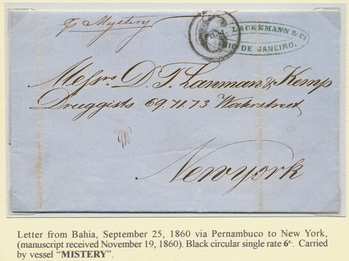 p Mystery
LACKEMANN & Co
RIO DE JANEIRO.
6
Messrs. D. T. Lanman & Kemp
Druggists 69.71.73 Waterstreet
Newyork
Letter from Bahia, September 25, 1860 via Pernambuco to New York,
(manuscript received November 19, 1860). Black circular single rate 6c. Carried
by vessel “MISTERY”.